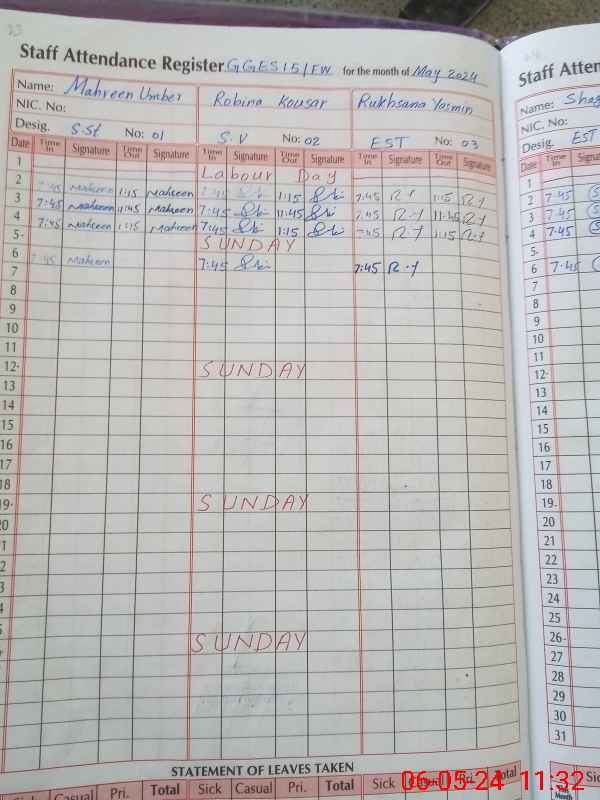 23
Staff Attendance Register GGES 15/FW for the month of May 2024
Name: Mahreen Umber Robina Kousar Rukhsana Yasmin
NIC. No:
Desig. S.St No: 01 S.V No: 02 EST No: 03
Date Time In Signature Time Out Signature Time In Signature Time Out Signature Time In Signature Time Out Signature
1 Labour Day
2 7:45 Mahreen 1:15 Mahreen 7:45 1:15 7:45 R.Y 1:15 R.Y
3 7:45 Mahreen 11:45 Mahreen 7:45 11:45 7:45 R.Y 11:45 R.Y
4 7:45 Mahreen 1:15 Mahreen 7:45 1:15 7:45 R.Y 1:15 R.Y
5 SUNDAY
6 7:45 Mahreen 7:45 7:45 R.Y
7
8
9
10
11
12 SUNDAY
13
14
15
16
17
18
19 SUNDAY
20
1
2
3
4
SUNDAY
STATEMENT OF LEAVES TAKEN
Sick Casual Pri. Total Sick Casual Pri. Total Sick Casual Pri. Total
Staff Atten
Name: Shag
NIC. No:
Desig. EST
Date Time In Signat
1
2 7:45
3 7:45
4 7:45
5
6 7:45
7
8
9
10
11
12
13
14
15
16
17
18
19
20
21
22
23
24
25
26
27
28
29
30
31
Month Sic
06-05-24 11:32